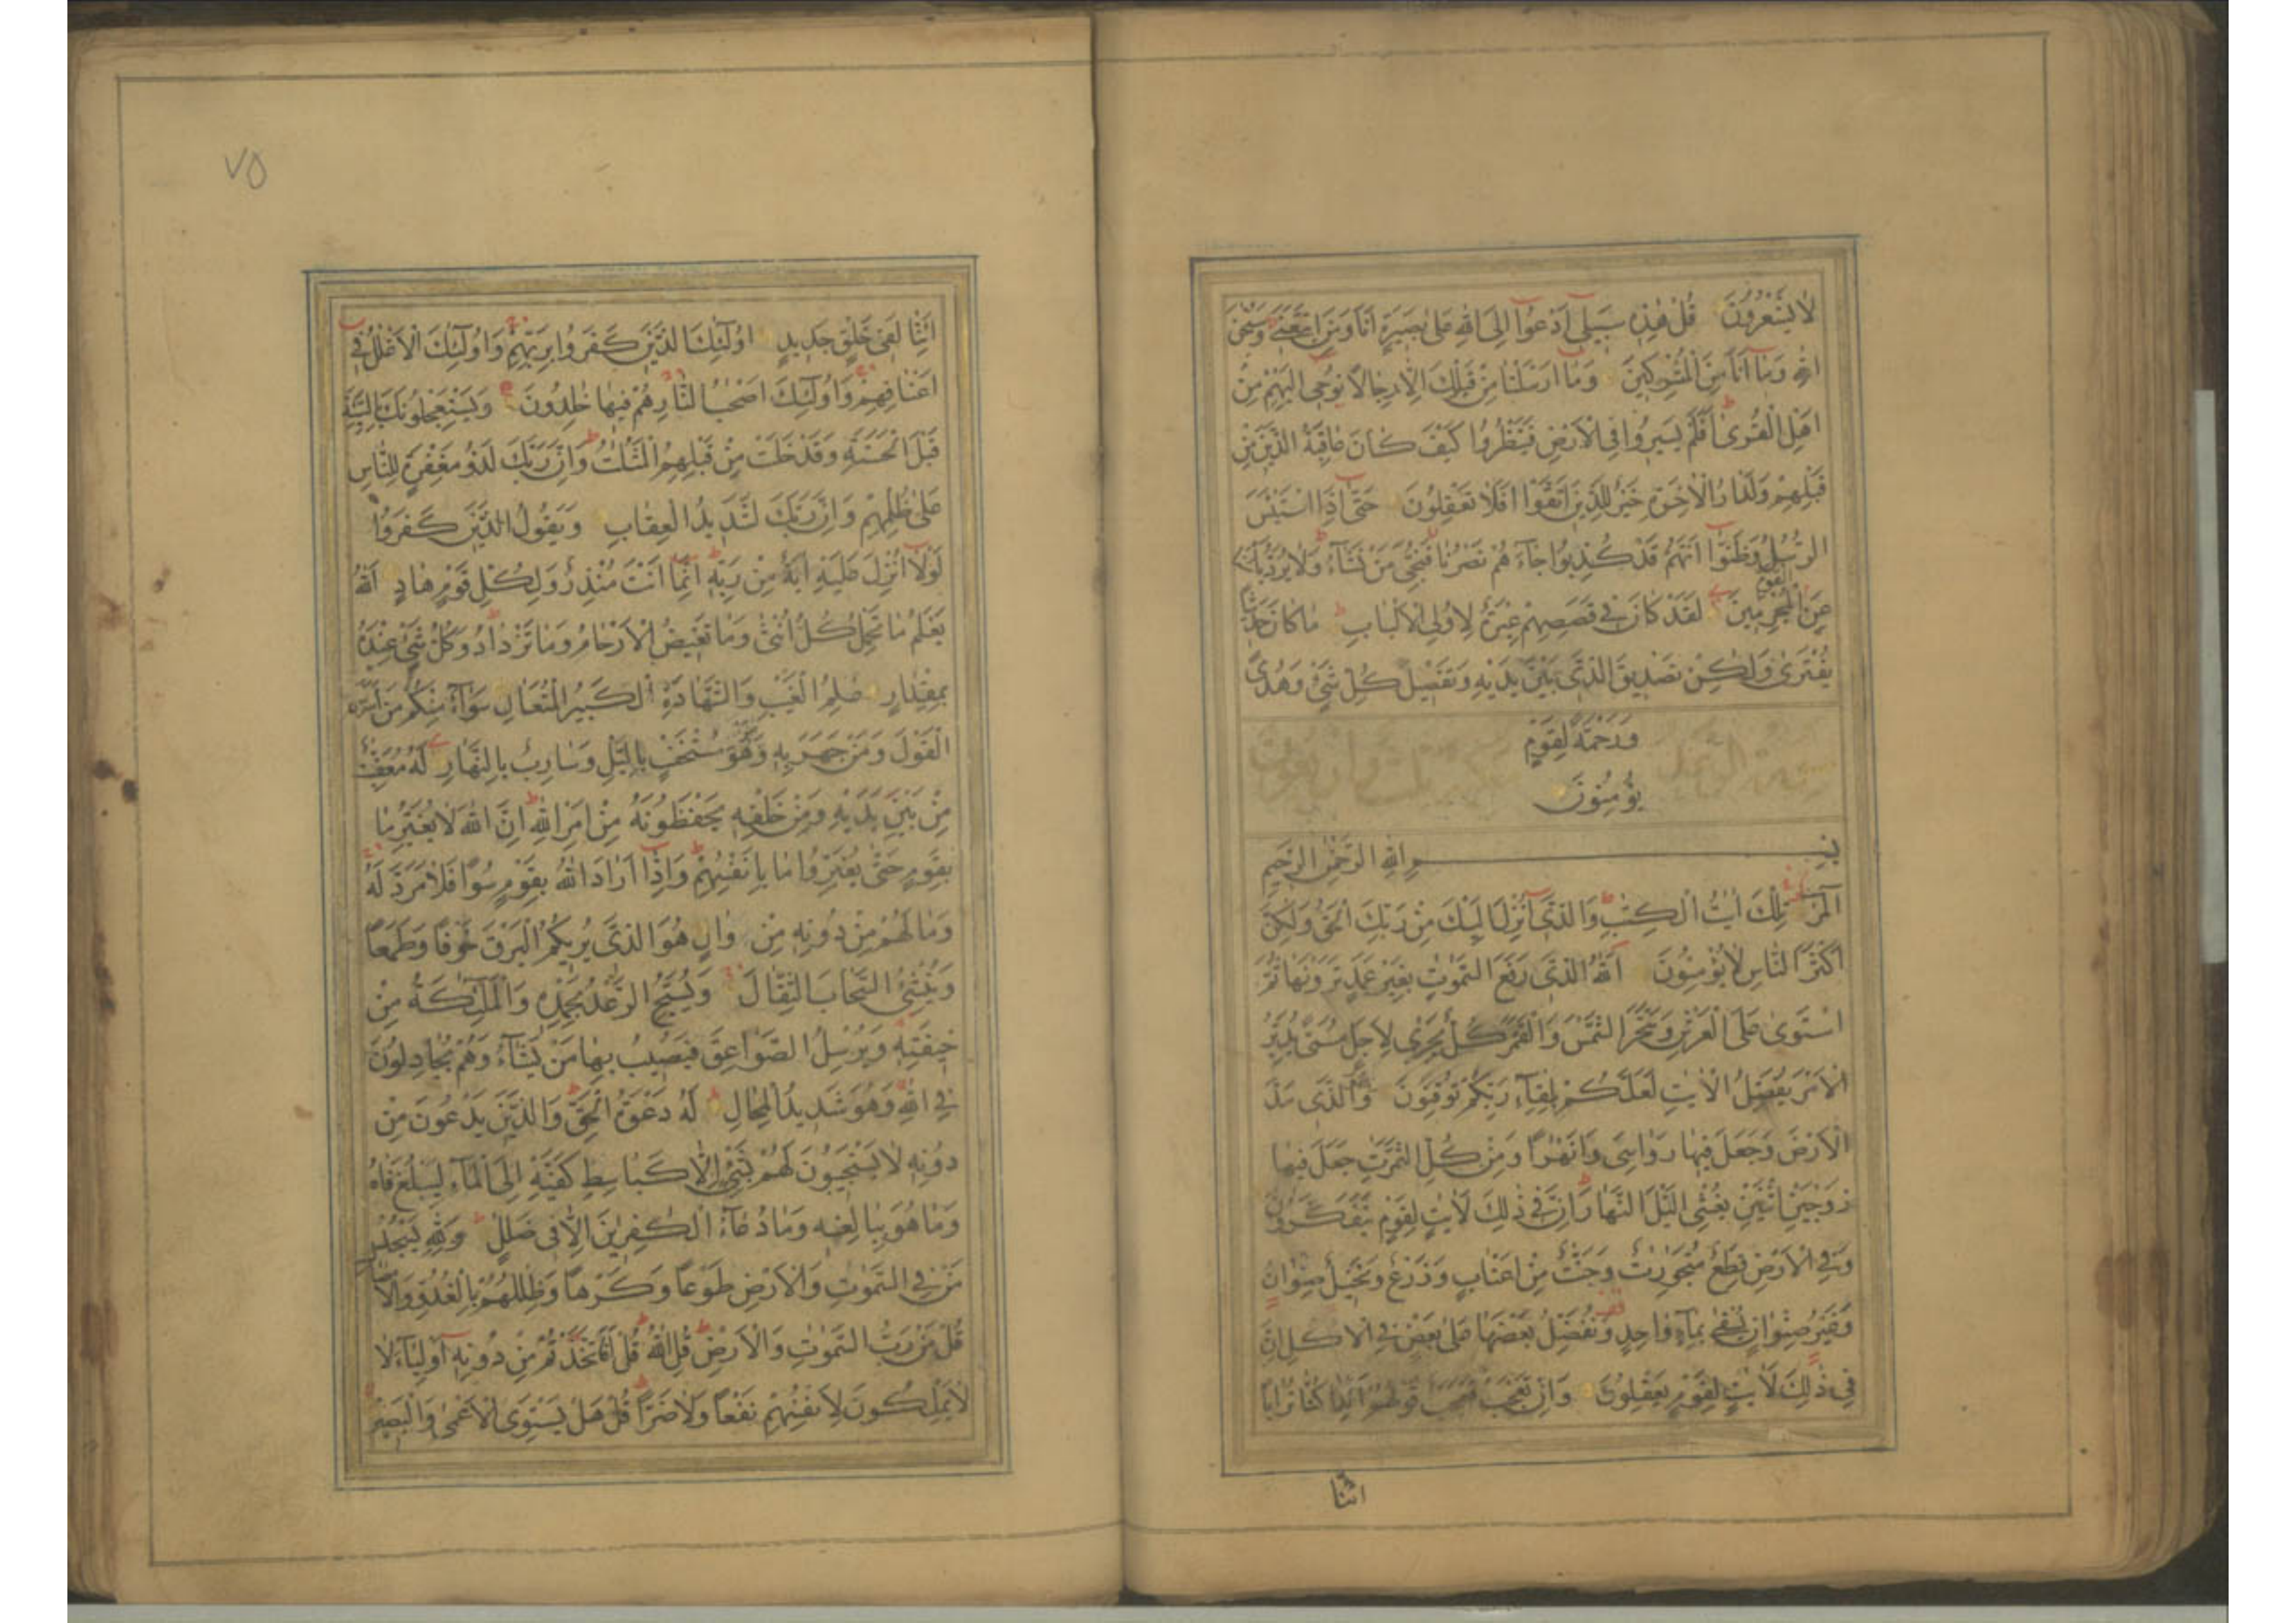 لا يَشْعُرُونَ قُلْ هٰذِهِ سَبِيلِي أَدْعُوا إِلَى اللهِ عَلٰى بَصِيرَةٍ أَنَا وَمَنِ اتَّبَعَنِي وَسُبْحٰنَ
اللهِ وَمَا أَنَا مِنَ الْمُشْرِكِينَ وَمَا أَرْسَلْنَا مِنْ قَبْلِكَ إِلَّا رِجَالًا نُوحِي إِلَيْهِمْ مِنْ
أَهْلِ الْقُرٰى أَفَلَمْ يَسِيرُوا فِي الْأَرْضِ فَيَنْظُرُوا كَيْفَ كَانَ عَاقِبَةُ الَّذِينَ مِنْ
قَبْلِهِمْ وَلَدَارُ الْآخِرَةِ خَيْرٌ لِلَّذِينَ اتَّقَوْا أَفَلَا تَعْقِلُونَ حَتّٰى إِذَا اسْتَيْئَسَ
الرُّسُلُ وَظَنُّوا أَنَّهُمْ قَدْ كُذِبُوا جَاءَهُمْ نَصْرُنَا فَنُجِّيَ مَنْ نَشَاءُ وَلَا يُرَدُّ بَأْسُنَا
عَنِ الْقَوْمِ الْمُجْرِمِينَ لَقَدْ كَانَ فِي قَصَصِهِمْ عِبْرَةٌ لِأُولِي الْأَلْبَابِ مَا كَانَ حَدِيثًا
يُفْتَرٰى وَلٰكِنْ تَصْدِيقَ الَّذِي بَيْنَ يَدَيْهِ وَتَفْصِيلَ كُلِّ شَيْءٍ وَهُدًى
وَرَحْمَةً لِقَوْمٍ
يُؤْمِنُونَ
بِسْمِ اللهِ الرَّحْمٰنِ الرَّحِيمِ
الٓمٓرٰ تِلْكَ اٰيٰتُ الْكِتٰبِ وَالَّذِي أُنْزِلَ إِلَيْكَ مِنْ رَبِّكَ الْحَقُّ وَلٰكِنَّ
أَكْثَرَ النَّاسِ لَا يُؤْمِنُونَ اَللهُ الَّذِي رَفَعَ السَّمٰوٰتِ بِغَيْرِ عَمَدٍ تَرَوْنَهَا ثُمَّ
اسْتَوٰى عَلَى الْعَرْشِ وَسَخَّرَ الشَّمْسَ وَالْقَمَرَ كُلٌّ يَجْرِي لِأَجَلٍ مُسَمًّى يُدَبِّرُ
الْأَمْرَ يُفَصِّلُ الْاٰيٰتِ لَعَلَّكُمْ بِلِقَاءِ رَبِّكُمْ تُوقِنُونَ وَهُوَ الَّذِي مَدَّ
الْأَرْضَ وَجَعَلَ فِيهَا رَوَاسِيَ وَأَنْهٰرًا وَمِنْ كُلِّ الثَّمَرٰتِ جَعَلَ فِيهَا
زَوْجَيْنِ اثْنَيْنِ يُغْشِي اللَّيْلَ النَّهَارَ إِنَّ فِي ذٰلِكَ لَاٰيٰتٍ لِقَوْمٍ يَتَفَكَّرُونَ
وَفِي الْأَرْضِ قِطَعٌ مُتَجٰوِرٰتٌ وَجَنّٰتٌ مِنْ أَعْنَابٍ وَزَرْعٌ وَنَخِيلٌ صِنْوَانٌ
وَغَيْرُ صِنْوَانٍ يُسْقٰى بِمَاءٍ وَاحِدٍ وَنُفَضِّلُ بَعْضَهَا عَلٰى بَعْضٍ فِي الْأُكُلِ إِنَّ
فِي ذٰلِكَ لَاٰيٰتٍ لِقَوْمٍ يَعْقِلُونَ وَإِنْ تَعْجَبْ فَعَجَبٌ قَوْلُهُمْ أَئِذَا كُنَّا تُرَابًا
ائنا
٧٥
أَئِنَّا لَفِي خَلْقٍ جَدِيدٍ أُولٰئِكَ الَّذِينَ كَفَرُوا بِرَبِّهِمْ وَأُولٰئِكَ الْأَغْلٰلُ فِي
أَعْنَاقِهِمْ وَأُولٰئِكَ أَصْحٰبُ النَّارِ هُمْ فِيهَا خٰلِدُونَ وَيَسْتَعْجِلُونَكَ بِالسَّيِّئَةِ
قَبْلَ الْحَسَنَةِ وَقَدْ خَلَتْ مِنْ قَبْلِهِمُ الْمَثُلٰتُ وَإِنَّ رَبَّكَ لَذُو مَغْفِرَةٍ لِلنَّاسِ
عَلٰى ظُلْمِهِمْ وَإِنَّ رَبَّكَ لَشَدِيدُ الْعِقَابِ وَيَقُولُ الَّذِينَ كَفَرُوا
لَوْلَا أُنْزِلَ عَلَيْهِ اٰيَةٌ مِنْ رَبِّهِ إِنَّمَا أَنْتَ مُنْذِرٌ وَلِكُلِّ قَوْمٍ هَادٍ اَللهُ
يَعْلَمُ مَا تَحْمِلُ كُلُّ أُنْثٰى وَمَا تَغِيضُ الْأَرْحَامُ وَمَا تَزْدَادُ وَكُلُّ شَيْءٍ عِنْدَهُ
بِمِقْدَارٍ عٰلِمُ الْغَيْبِ وَالشَّهَادَةِ الْكَبِيرُ الْمُتَعَالِ سَوَاءٌ مِنْكُمْ مَنْ أَسَرَّ
الْقَوْلَ وَمَنْ جَهَرَ بِهِ وَمَنْ هُوَ مُسْتَخْفٍ بِاللَّيْلِ وَسَارِبٌ بِالنَّهَارِ لَهُ مُعَقِّبٰتٌ
مِنْ بَيْنِ يَدَيْهِ وَمِنْ خَلْفِهِ يَحْفَظُونَهُ مِنْ أَمْرِ اللهِ إِنَّ اللهَ لَا يُغَيِّرُ مَا
بِقَوْمٍ حَتّٰى يُغَيِّرُوا مَا بِأَنْفُسِهِمْ وَإِذَا أَرَادَ اللهُ بِقَوْمٍ سُوءًا فَلَا مَرَدَّ لَهُ
وَمَا لَهُمْ مِنْ دُونِهِ مِنْ وَالٍ هُوَ الَّذِي يُرِيكُمُ الْبَرْقَ خَوْفًا وَطَمَعًا
وَيُنْشِئُ السَّحَابَ الثِّقَالَ وَيُسَبِّحُ الرَّعْدُ بِحَمْدِهِ وَالْمَلٰئِكَةُ مِنْ
خِيفَتِهِ وَيُرْسِلُ الصَّوَاعِقَ فَيُصِيبُ بِهَا مَنْ يَشَاءُ وَهُمْ يُجَادِلُونَ
فِي اللهِ وَهُوَ شَدِيدُ الْمِحَالِ لَهُ دَعْوَةُ الْحَقِّ وَالَّذِينَ يَدْعُونَ مِنْ
دُونِهِ لَا يَسْتَجِيبُونَ لَهُمْ بِشَيْءٍ إِلَّا كَبَاسِطِ كَفَّيْهِ إِلَى الْمَاءِ لِيَبْلُغَ فَاهُ
وَمَا هُوَ بِبَالِغِهِ وَمَا دُعَاءُ الْكٰفِرِينَ إِلَّا فِي ضَلٰلٍ وَلِلّٰهِ يَسْجُدُ
مَنْ فِي السَّمٰوٰتِ وَالْأَرْضِ طَوْعًا وَكَرْهًا وَظِلٰلُهُمْ بِالْغُدُوِّ وَالْاٰصَالِ
قُلْ مَنْ رَبُّ السَّمٰوٰتِ وَالْأَرْضِ قُلِ اللهُ قُلْ أَفَاتَّخَذْتُمْ مِنْ دُونِهِ أَوْلِيَاءَ لَا
لَا يَمْلِكُونَ لِأَنْفُسِهِمْ نَفْعًا وَلَا ضَرًّا قُلْ هَلْ يَسْتَوِي الْأَعْمٰى وَالْبَصِيرُ